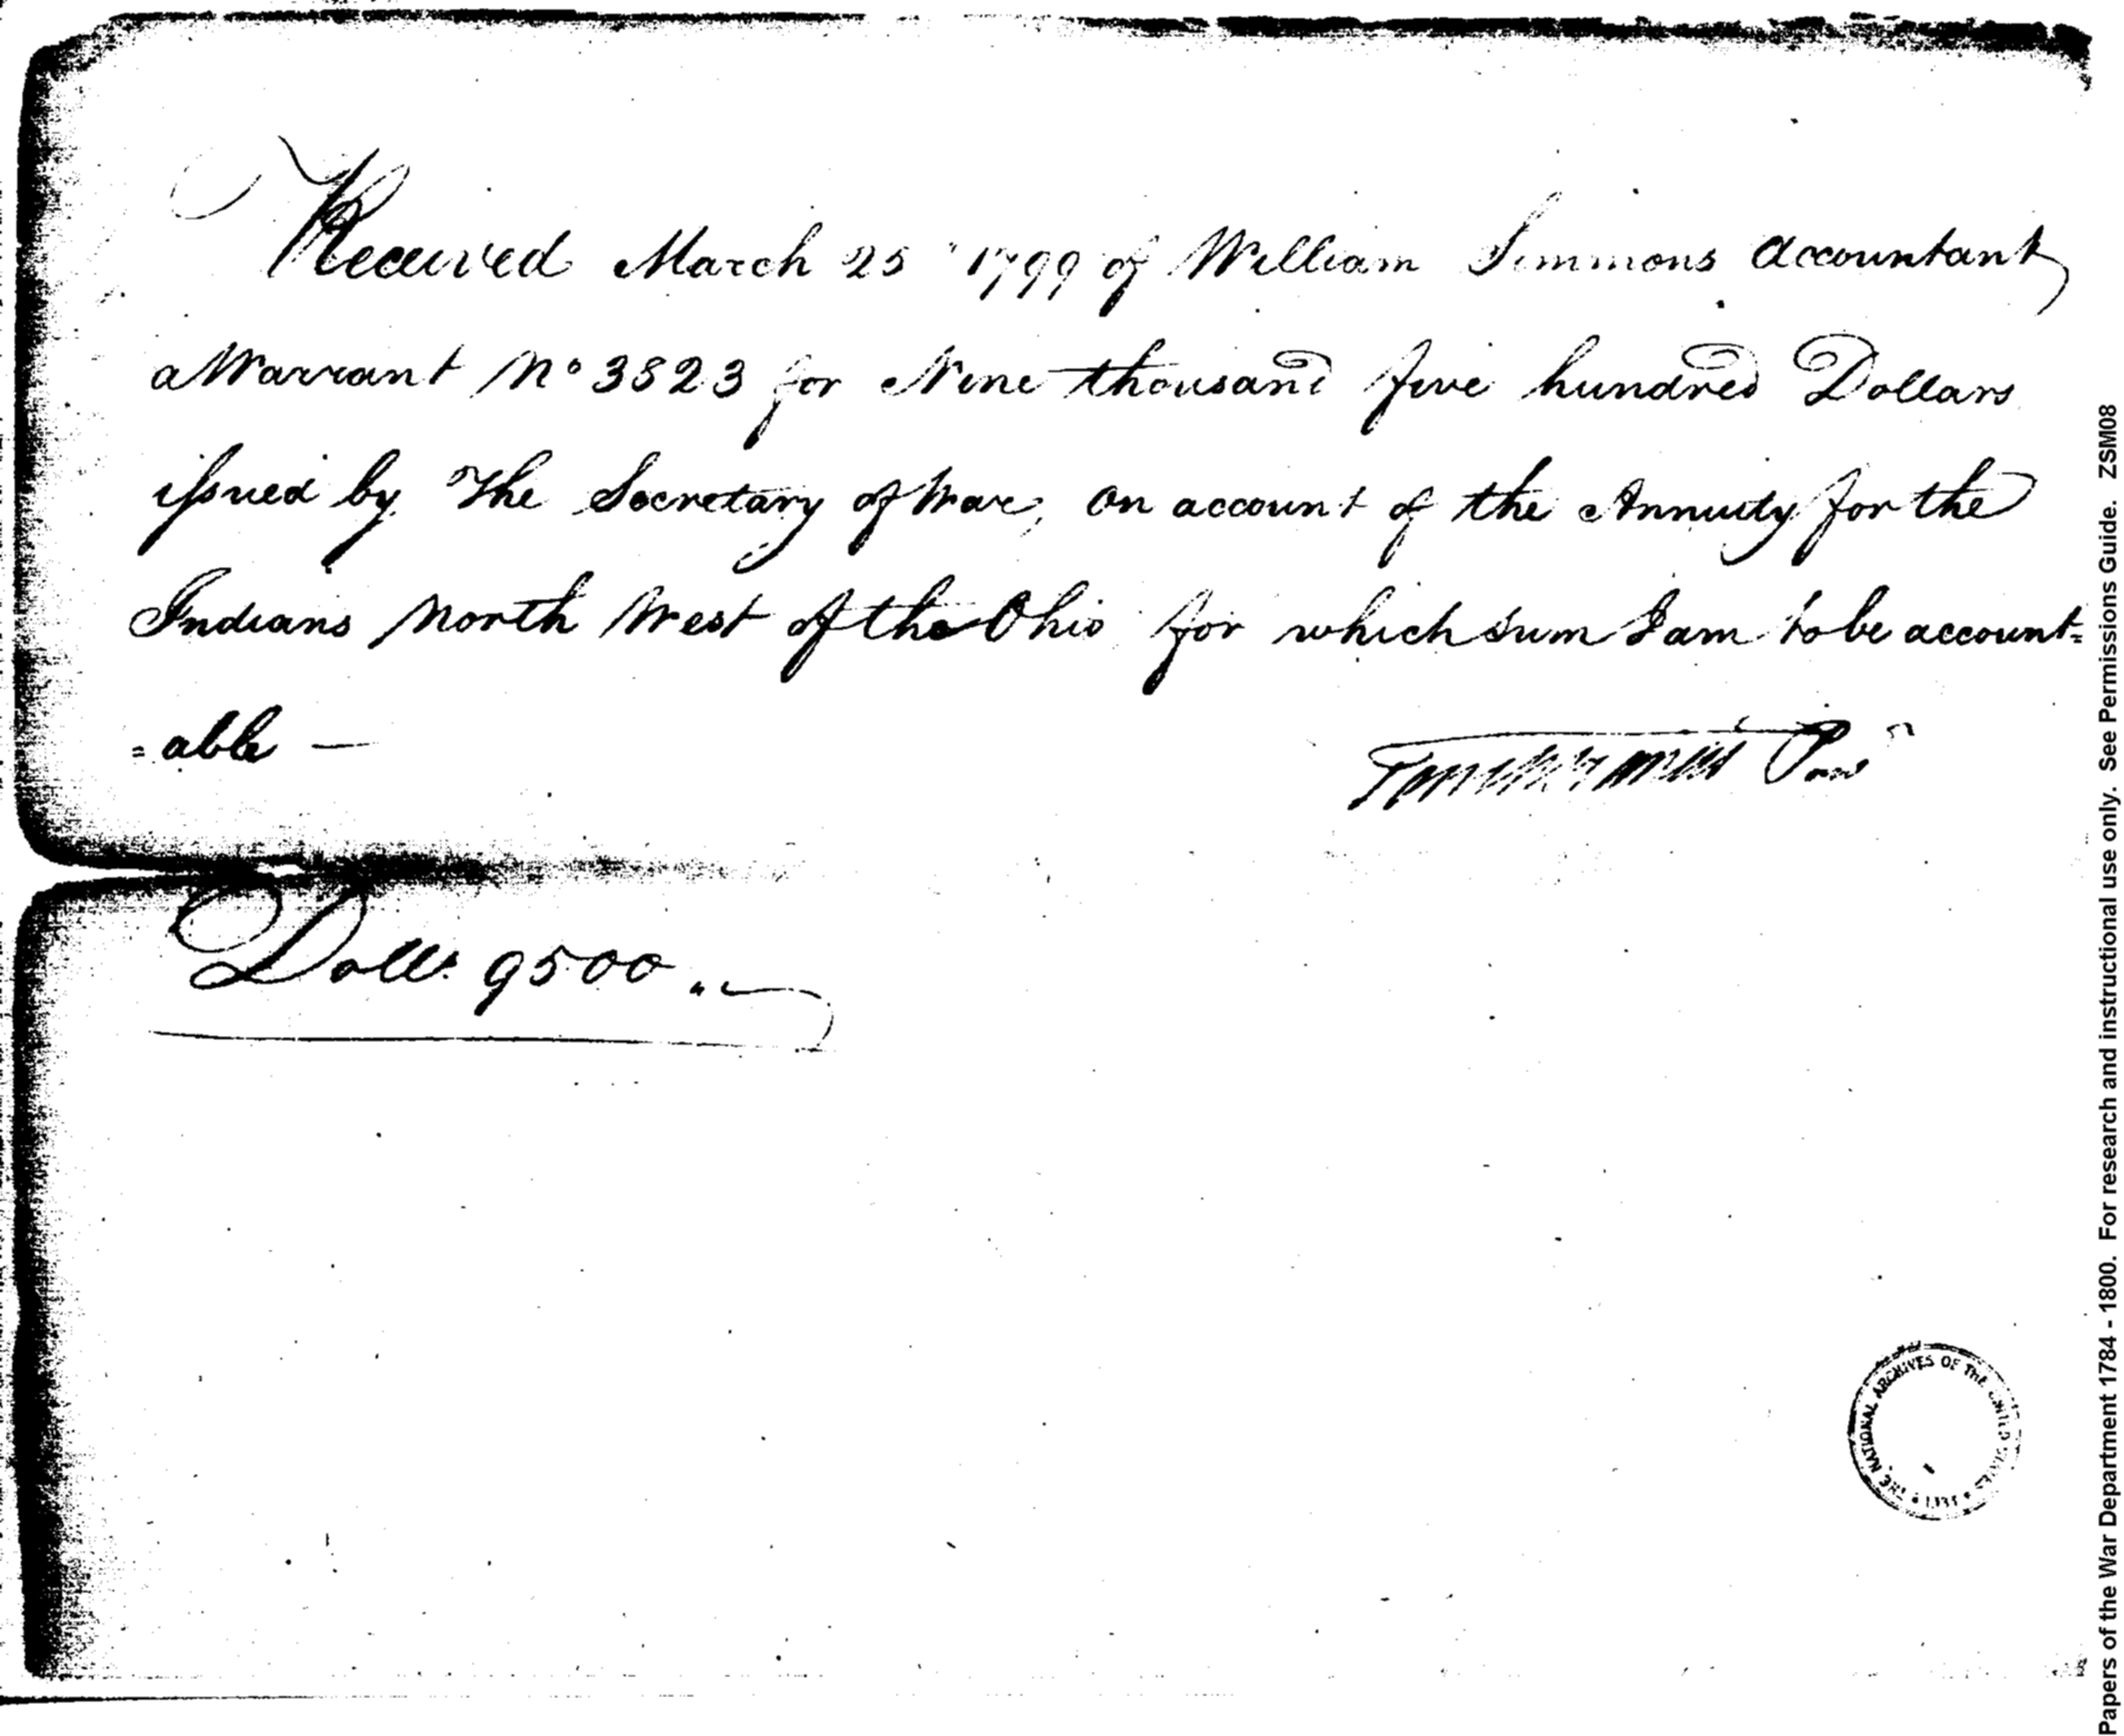 Received March 25 1799 of William Simmons Accountant
a Warrant No 3823 for Nine thousand five hundred Dollars
issued by The Secretary of War, on account of the Annuity for the
Indians North West of the Ohio for which sum I am to be account=
=able —
Dolls. 9500
THE NATIONAL ARCHIVES OF THE UNITED STATES
Papers of the War Department 1784 - 1800. For research and instructional use only. See Permissions Guide. ZSM08